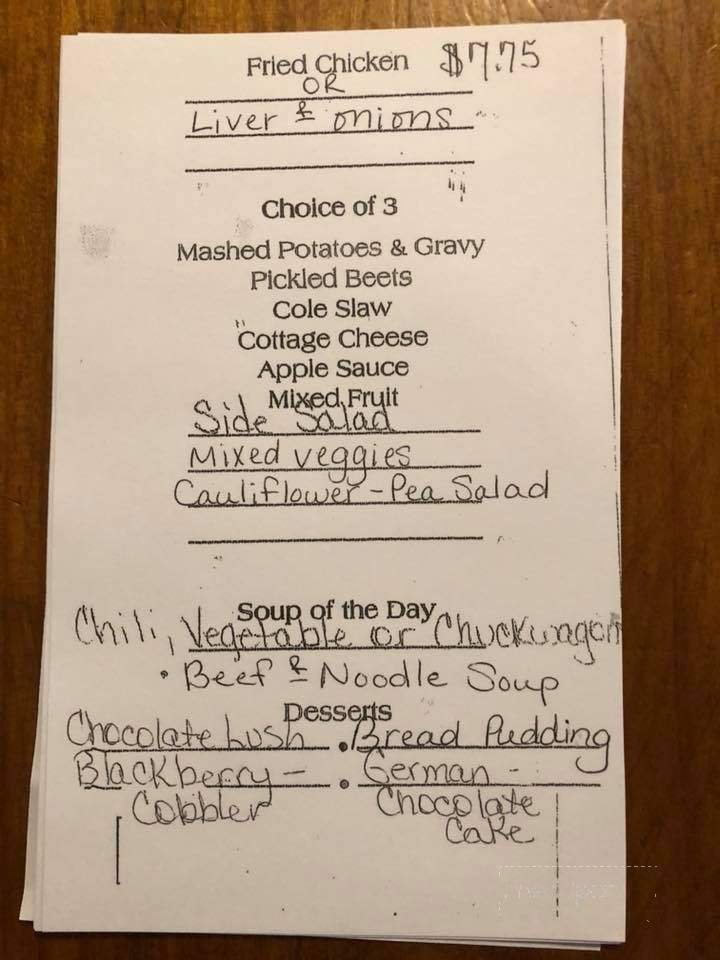 Fried Chicken $7.75
OR
Liver & onions
Choice of 3
Mashed Potatoes & Gravy
Pickled Beets
Cole Slaw
Cottage Cheese
Apple Sauce
Mixed Fruit
Side Salad
Mixed veggies
Cauliflower-Pea Salad
Soup of the Day
Chili, Vegetable or Chuckwagon
• Beef & Noodle Soup
Desserts
Chocolate Lush • Bread Pudding
Blackberry - • German -
Cobbler Chocolate
Cake